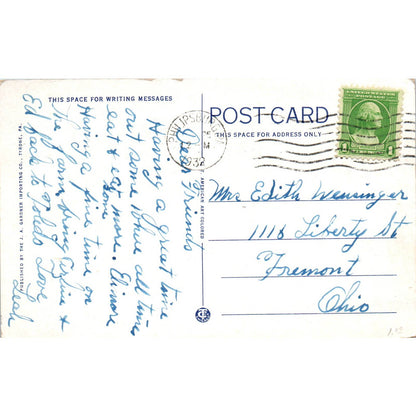 THIS SPACE FOR WRITING MESSAGES
Dear Friends
Having a great time
out some place all time
eat & eat more. Elmore
Having a fine time on
the farm, bring &
Ed back to Toledo Love
PUBLISHED BY THE J. A. GARDNER IMPORTING CO., TYRONE, PA.
AMERICAN ART COLORED
POST-CARD
THIS SPACE FOR ADDRESS ONLY
PHILIPSBURG
M
1932
UNITED STATES POSTAGE
1 1
Mrs Edith Wensinger
1116 Liberty St
Fremont
Ohio